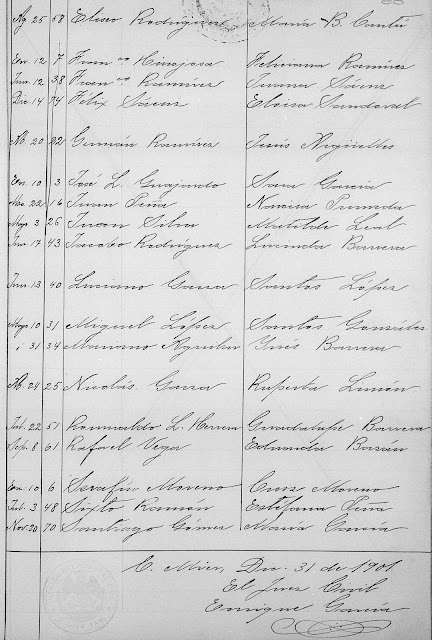 Ag 25 58 Eliseo Rodríguez María B. Cantú
En 12 7 Fran co Hinojosa Feliciana Ramírez
Jun. 12 38 Fran co Ramírez Juana Sáenz
Dic 14 74 Félix Sáenz Eloisa Sandoval
Ab. 20 22 Germán Ramírez Jesús Argüelles
En. 10 3 José L. Guajardo Sara García
Mzo. 22 16 Juan Peña Narcisa
Mayo 3 26 Juan Silva Matilde Leal
Jun. 17 43 Jacobo Rodríguez Lucinda Barrera
Jun. 13 40 Luciano Garza Santos López
Mayo 10 31 Miguel López Santos González
" 31 34 Mariano Aguilar Inés Barrera
Ab. 24 25 Nicolás Garza Ruperta Limón
Jul. 22 51 Romualdo L. Herrera Guadalupe Barrera
Sep. 8 61 Rafael Vega Eduarda Bazán
En. 10 6 Serafín Moreno Cruz Moreno
Jul. 3 48 Sixto Ramón Estéfana Peña
Nov. 20 70 Santiago Gómez María García
C. Mier, Dic. 31 de 1901
El Juez Civil
Enrique García